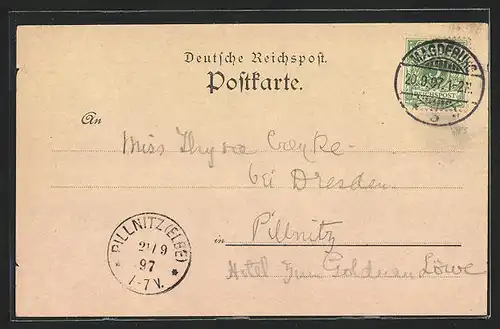 Deutsche Reichspost.
Postkarte.
MAGDEBURG
20.9.97.1-2N.
An
Miss
bei Dresden.
in Pillnitz
Hotel zum Goldnen Löwe
PILLNITZ (ELBE)
21/9
97
7-7V.